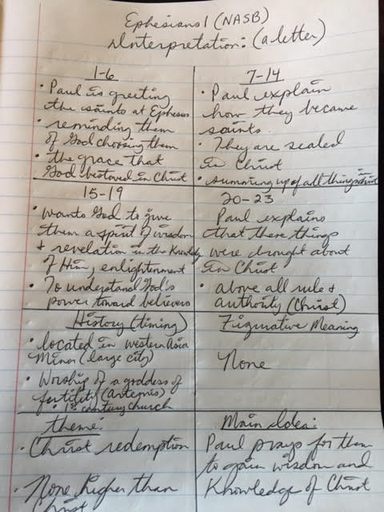 Ephesians 1 (NASB)
Interpretation: (a letter)
1-6
• Paul is greeting
the saints at Ephesus
• reminding them
of God choosing them
• the grace that
God bestowed in Christ
7-14
• Paul explain
how they became
saints.
• They are sealed
in Christ
• summing up of all things in Christ
15-19
• wants God to give
them a spirit of wisdom
& revelation in the Knowledge
of Him, enlightenment
• To understand God's
power toward believers
20-23
Paul explains
that these things
were brought about
in Christ
• above all rule &
authority (Christ)
History (timing)
• located in western Asia
Minor (large city)
• Worship of a goddess of
fertility (artemis)
• 1st century church
Figurative Meaning
None
theme:
• Christ redemption
• None higher than
Christ
Main Idea:
Paul prays for them
to gain wisdom and
Knowledge of Christ